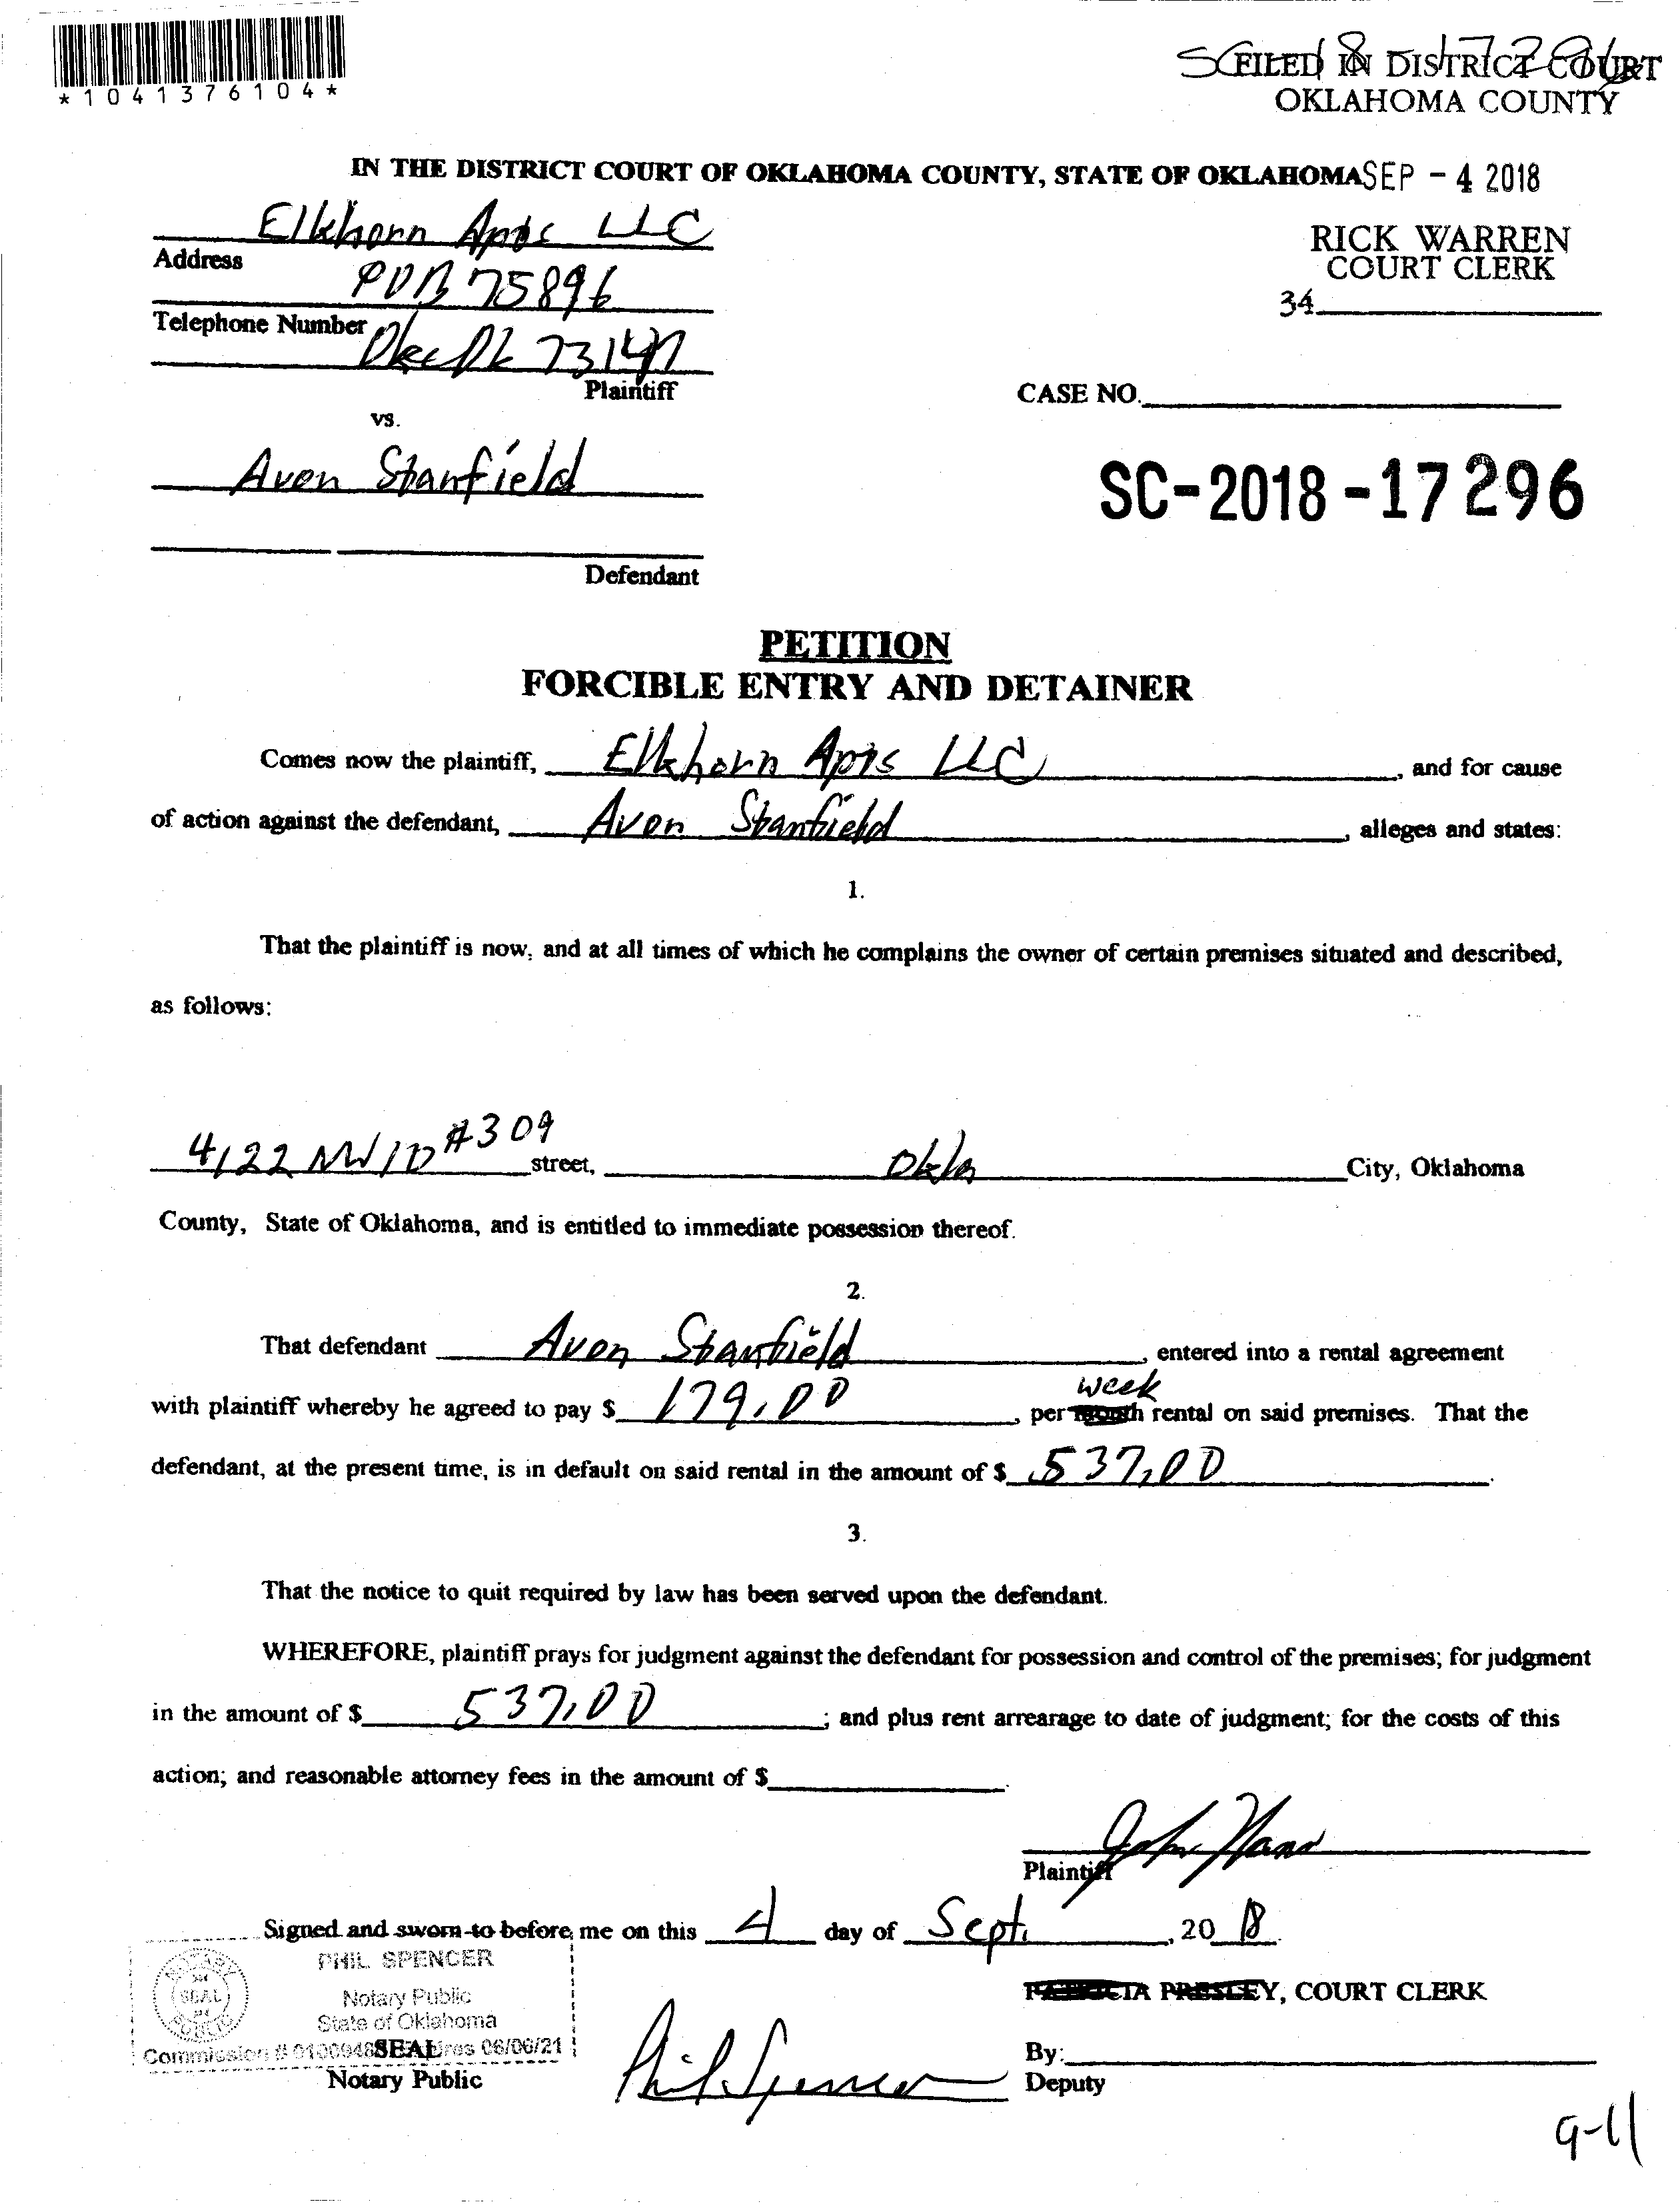 *1041376104*
FILED IN DISTRICT COURT
OKLAHOMA COUNTY
IN THE DISTRICT COURT OF OKLAHOMA COUNTY, STATE OF OKLAHOMA SEP - 4 2018
Elkhorn Apts LLC
RICK WARREN
COURT CLERK
Address
POB 75896
34
Telephone Number
Okc Ok 73147
Plaintiff
CASE NO.
vs.
Avon Stanfield
SC-2018-17296
Defendant
PETITION
FORCIBLE ENTRY AND DETAINER
Comes now the plaintiff, Elkhorn Apts LLC, and for cause
of action against the defendant, Avon Stanfield, alleges and states:
1.
That the plaintiff is now, and at all times of which he complains the owner of certain premises situated and described,
as follows:
4122 NW 10 #309 street, Okla City, Oklahoma
County, State of Oklahoma, and is entitled to immediate possession thereof.
2.
That defendant Avon Stanfield, entered into a rental agreement
week
with plaintiff whereby he agreed to pay $ 179.00, per month rental on said premises. That the
defendant, at the present time, is in default on said rental in the amount of $ 537.00.
3.
That the notice to quit required by law has been served upon the defendant.
WHEREFORE, plaintiff prays for judgment against the defendant for possession and control of the premises; for judgment
in the amount of $ 537.00; and plus rent arrearage to date of judgment; for the costs of this
action; and reasonable attorney fees in the amount of $.
John
Plaintiff
Signed and sworn to before me on this 4 day of Sept., 2018.
PHIL SPENCER
Notary Public
State of Oklahoma
NOTARY SEAL PUBLIC
Commission # 01009488 Expires 06/06/21
SEAL
Notary Public
Phil Spencer
PATRICIA PRESLEY, COURT CLERK
By:
Deputy
9-11